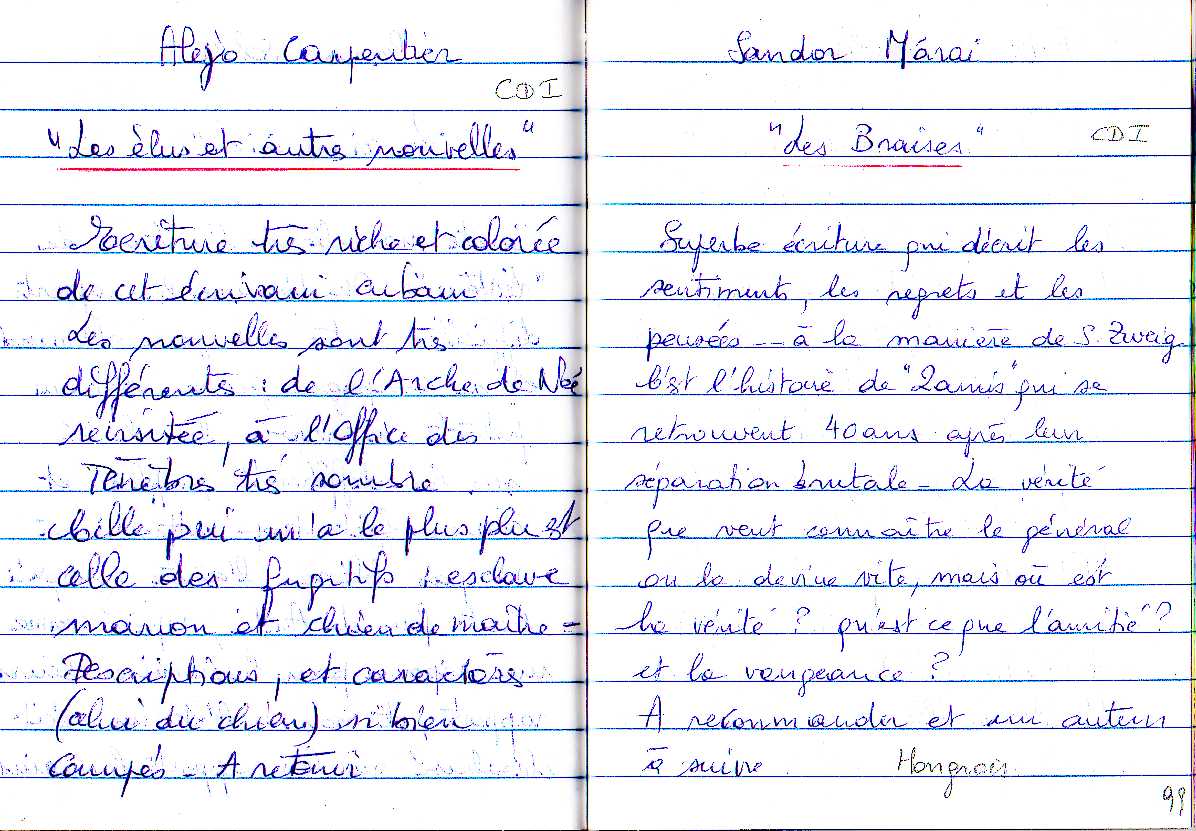 Alejo Carpentier
CDI
"Les élus et autres nouvelles"
Ecriture très riche et colorée
de cet écrivain cubain
Les nouvelles sont très
différents : de l'Arche de Noé
revisitée, à l'Office des
Ténèbres très sombre.
Celle qui m'a le plus plu est
celle des fugitifs : esclave
marron et chien de maître -
Descriptions, et caractères
(celui du chien) si bien
campés - A retenir
Sandor Márai
CDI
"Les Braises"
Superbe écriture qui décrit les
sentiments, les regrets et les
pensées -- à la manière de S. Zweig.
C'est l'histoire de "2 amis" qui se
retrouvent 40 ans après leur
séparation brutale - La vérité
que veut connaître le général
on la devine vite, mais où est
la vérité ? qu'est ce que l'amitié ?
et la vengeance ?
A recommander et un auteur
à suivre
Hongrois